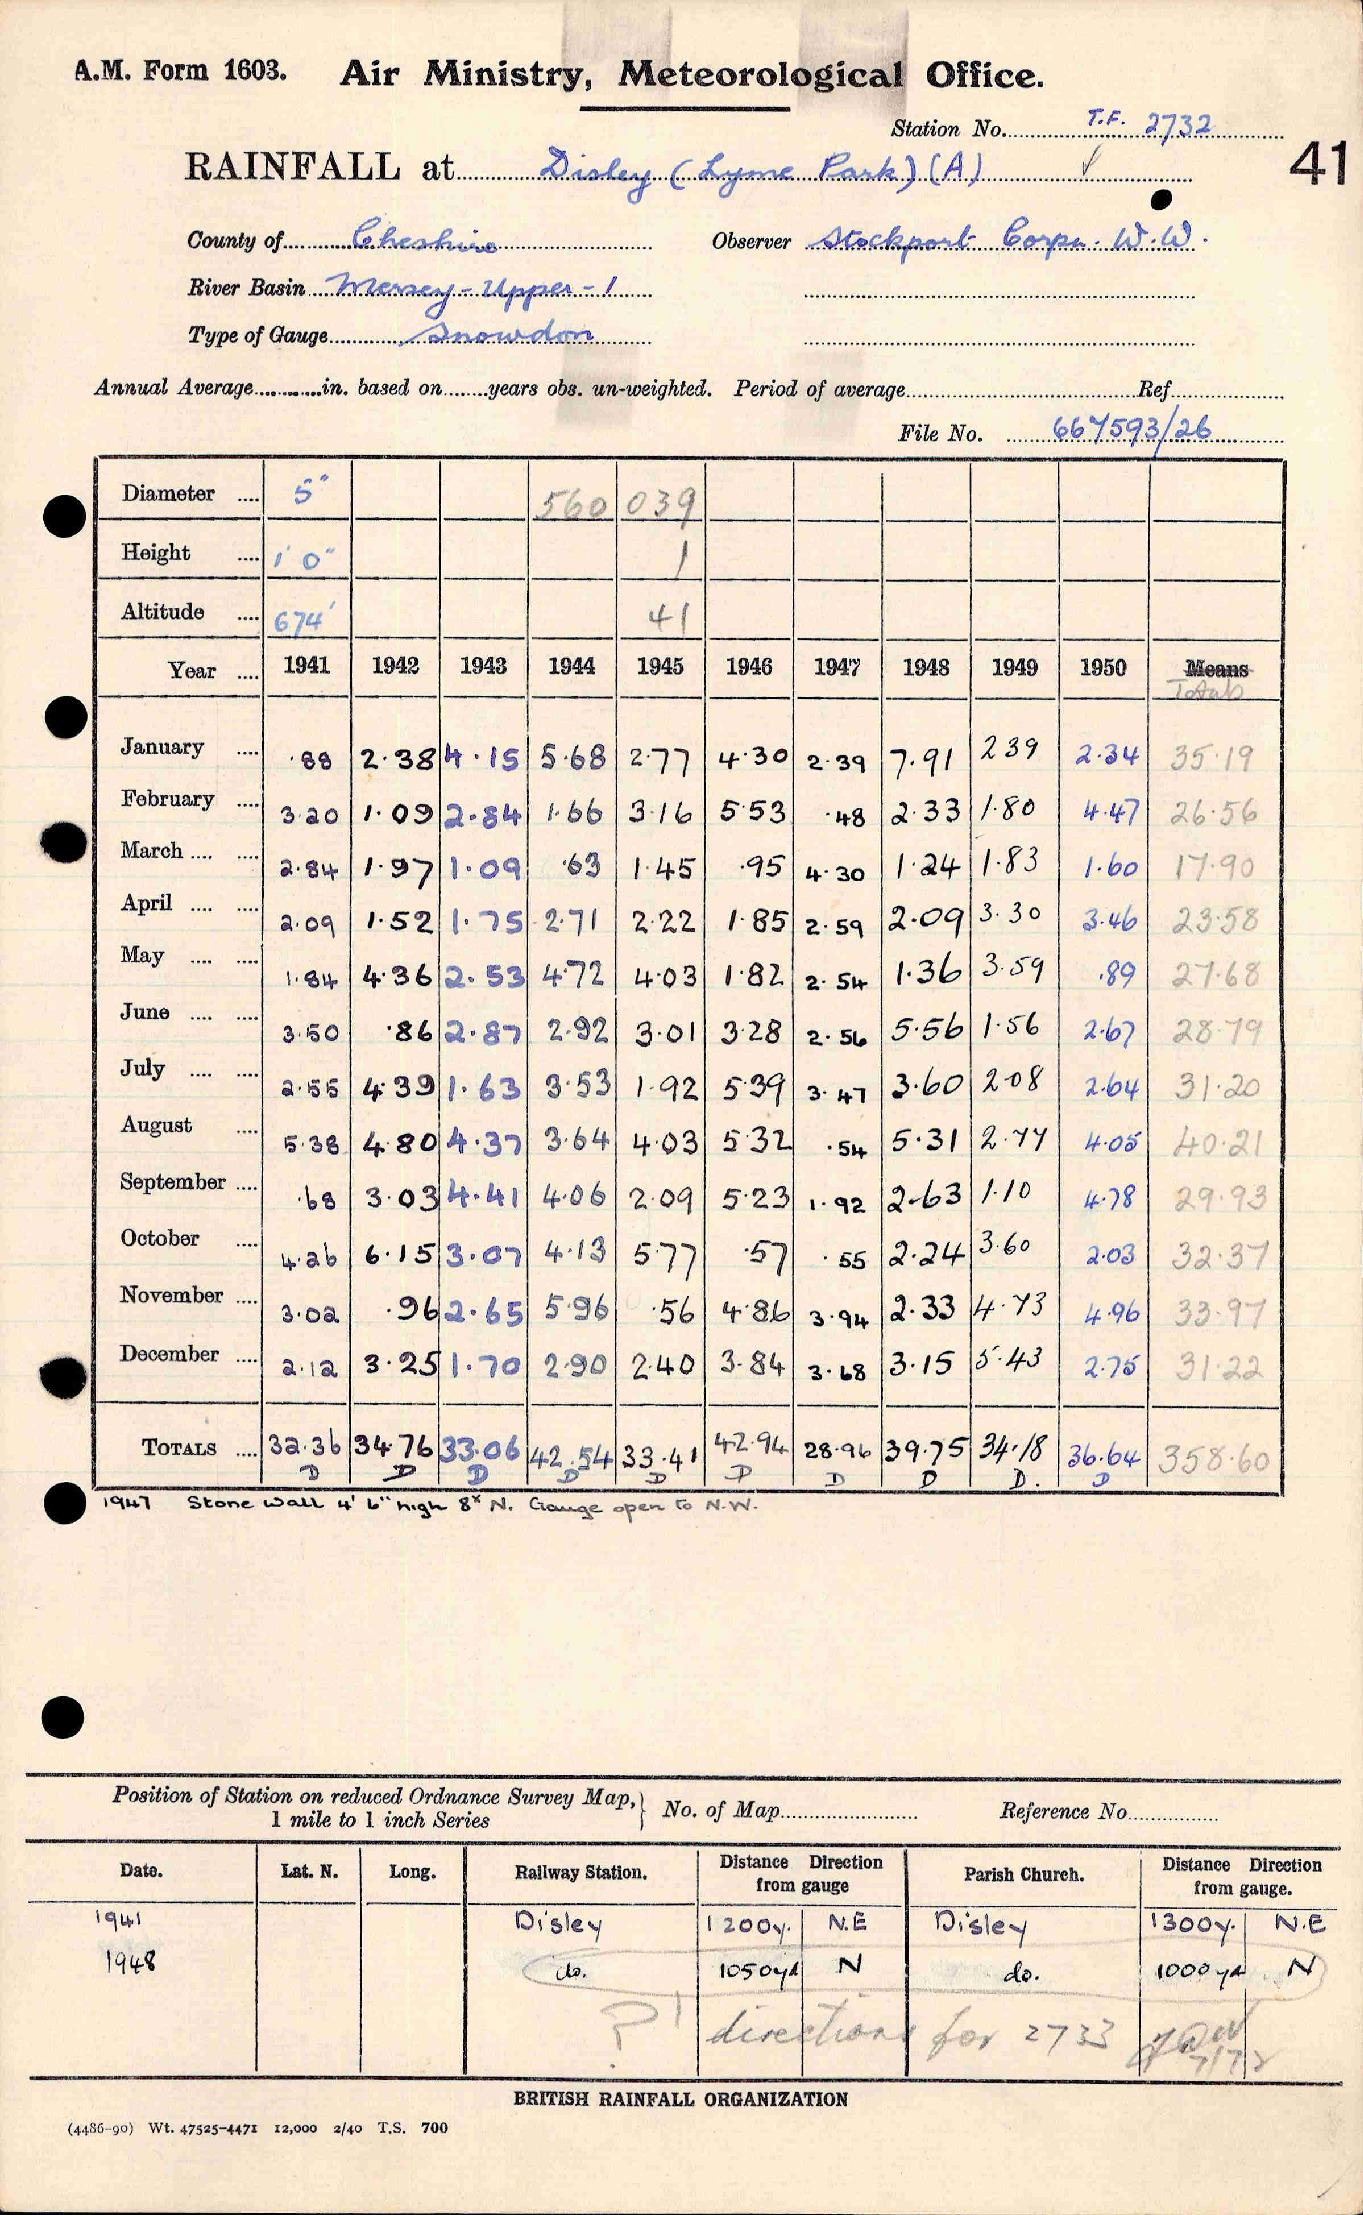 A.M. Form 1603. Air Ministry, Meteorological Office.
Station No. T.F. 2732
41
RAINFALL at Disley (Lyme Park) (A) ✓
County of Cheshire Observer Stockport Corpn. W.W.
River Basin Mersey - Upper - 1
Type of Gauge Snowdon
Annual Average............in. based on........years obs. un-weighted. Period of average........Ref........
File No. 667593/26
Diameter .... 5" 560 039
Height .... 1' 0" 1
Altitude .... 674' 41
Year .... 1941 1942 1943 1944 1945 1946 1947 1948 1949 1950 Means
Totals
January .... .88 2.38 4.15 5.68 2.77 4.30 2.39 7.91 2 39 2.34 35.19
February .... 3.20 1.09 2.84 1.66 3.16 5.53 .48 2.33 1.80 4.47 26.56
March .... .... 2.84 1.97 1.09 .63 1.45 .95 4.30 1.24 1.83 1.60 17.90
April .... .... 2.09 1.52 1.75 2.71 2.22 1.85 2.59 2.09 3.30 3.46 23.58
May .... .... 1.84 4.36 2.53 4.72 4.03 1.82 2.54 1.36 3.59 .89 27.68
June .... .... 3.50 .86 2.87 2.92 3.01 3.28 2.56 5.56 1.56 2.67 28.79
July .... .... 2.55 4.39 1.63 3.53 1.92 5.39 3.47 3.60 2.08 2.64 31.20
August .... 5.38 4.80 4.37 3.64 4.03 5.32 .54 5.31 2.77 4.05 40.21
September .... .68 3.03 4.41 4.06 2.09 5.23 1.92 2.63 1.10 4.78 29.93
October .... 4.26 6.15 3.07 4.13 5.77 .57 .55 2.24 3.60 2.03 32.37
November .... 3.02 .96 2.65 5.96 .56 4.86 3.94 2.33 4.73 4.96 33.97
December .... 2.12 3.25 1.70 2.90 2.40 3.84 3.68 3.15 5.43 2.75 31.22
TOTALS .... 32.36 34.76 33.06 42.54 33.41 42.94 28.96 39.75 34.18 36.64 358.60
D D D D D D D D D. D
1947 Stone wall 4' 6" high 8x N. Gauge open to N.W.
Position of Station on reduced Ordnance Survey Map, } No. of Map........ Reference No........
1 mile to 1 inch Series
Date. Lat. N. Long. Railway Station. Distance Direction Parish Church. Distance Direction
from gauge from gauge.
1941 Disley 1200y. N.E Disley 1300y. N.E
1948 do. 1050yd N do. 1000yd N
?! directions for 2733
7/72
BRITISH RAINFALL ORGANIZATION
(4486-90) Wt. 47525-4471 12,000 2/40 T.S. 700